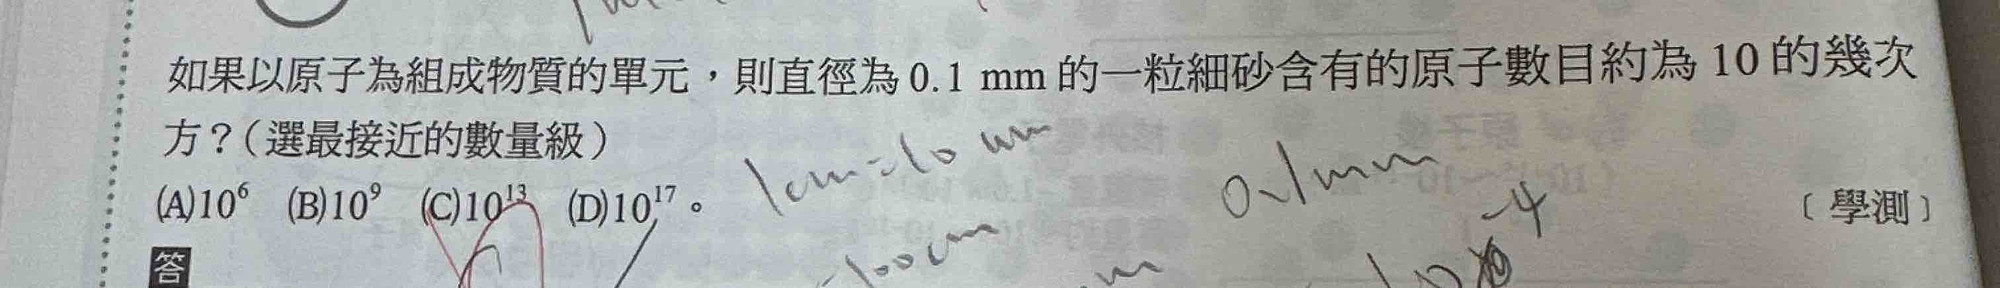 如果以原子為組成物質的單元，則直徑為 0.1 mm 的一粒細砂含有的原子數目約為 10 的幾次
方？（選最接近的數量級）
(A)10⁶ (B)10⁹ (C)10¹³ (D)10¹⁷。
〔學測〕
1cm=10mm
0.1mm
-4
100cm
m
10
答